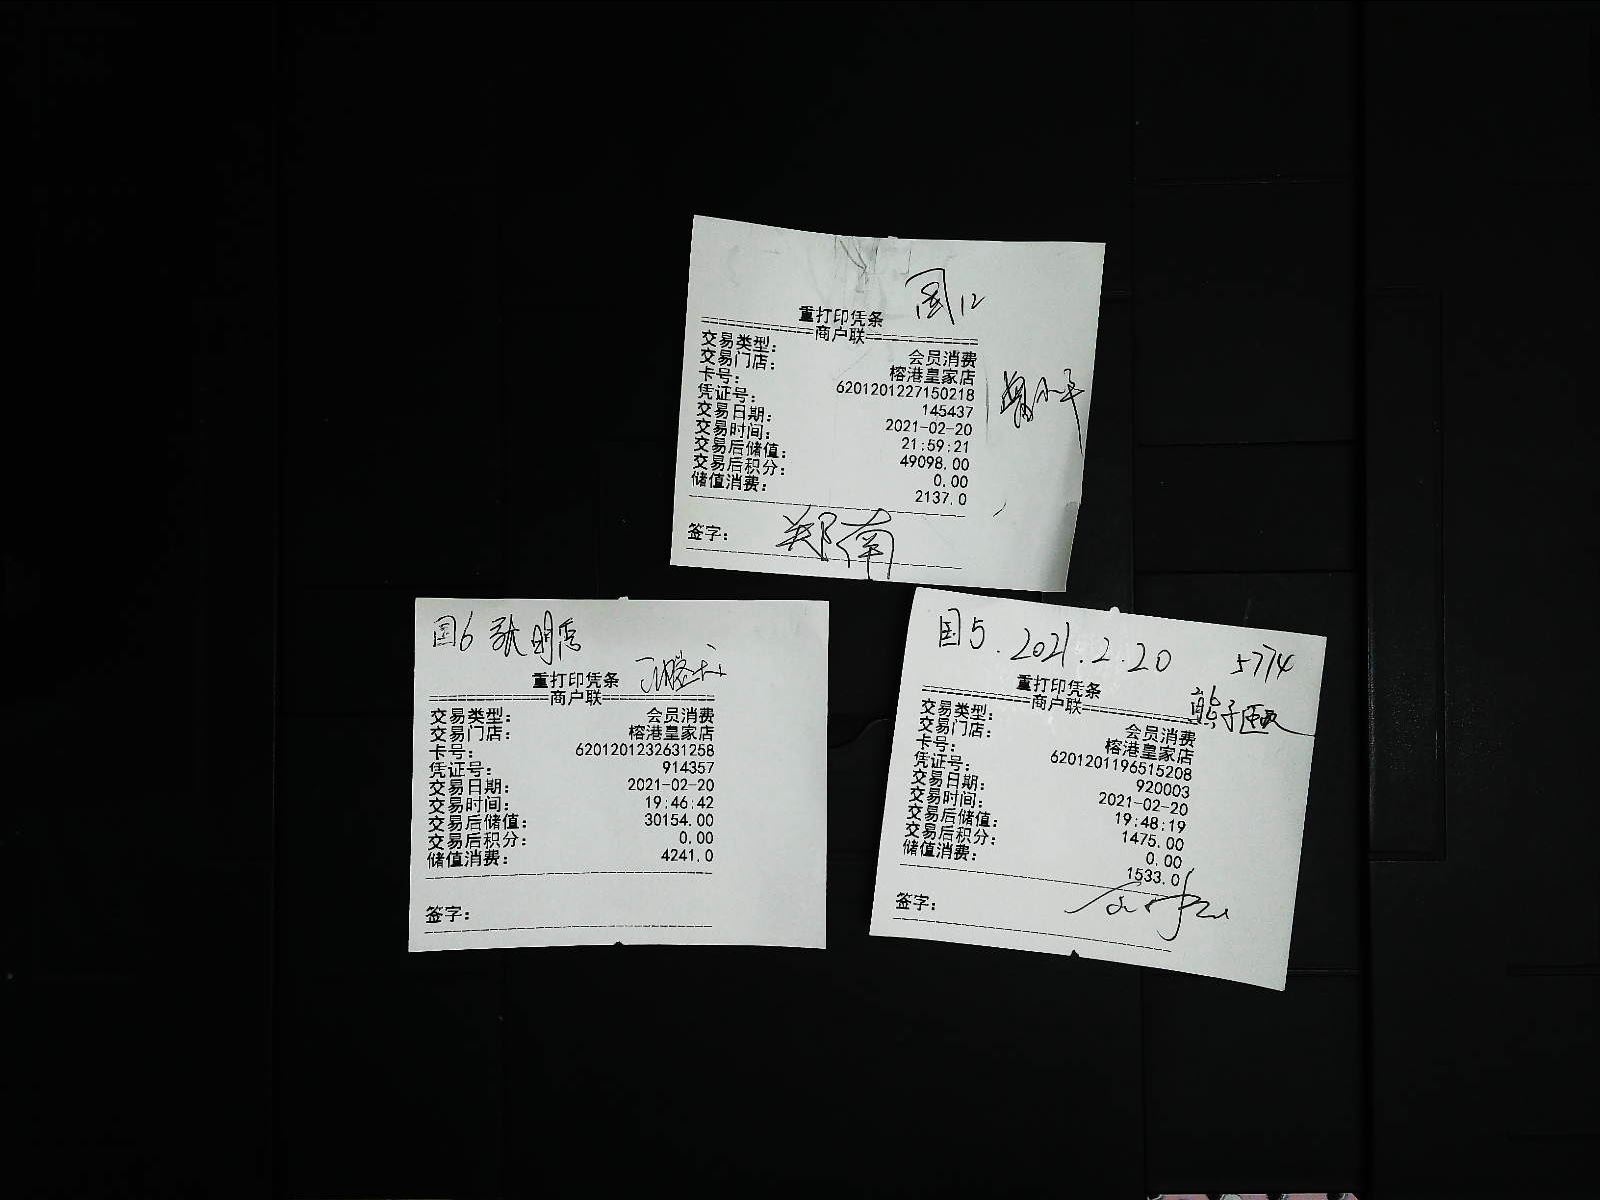 国12
重打印凭条
============商户联============
交易类型: 会员消费
交易门店: 榕港皇家店
卡号: 6201201227150218
凭证号: 145437
交易日期: 2021-02-20
交易时间: 21:59:21
交易后储值: 49098.00
交易后积分: 0.00
储值消费: 2137.0
签字: 郑南
国6 张明
重打印凭条
============商户联============
交易类型: 会员消费
交易门店: 榕港皇家店
卡号: 6201201232631258
凭证号: 914357
交易日期: 2021-02-20
交易时间: 19:46:42
交易后储值: 30154.00
交易后积分: 0.00
储值消费: 4241.0
签字:
国5.2021.2.20 5774
重打印凭条
熊子
============商户联============
交易类型: 会员消费
交易门店: 榕港皇家店
卡号: 6201201196515208
凭证号: 920003
交易日期: 2021-02-20
交易时间: 19:48:19
交易后储值: 1475.00
交易后积分: 0.00
储值消费: 1533.0
签字: